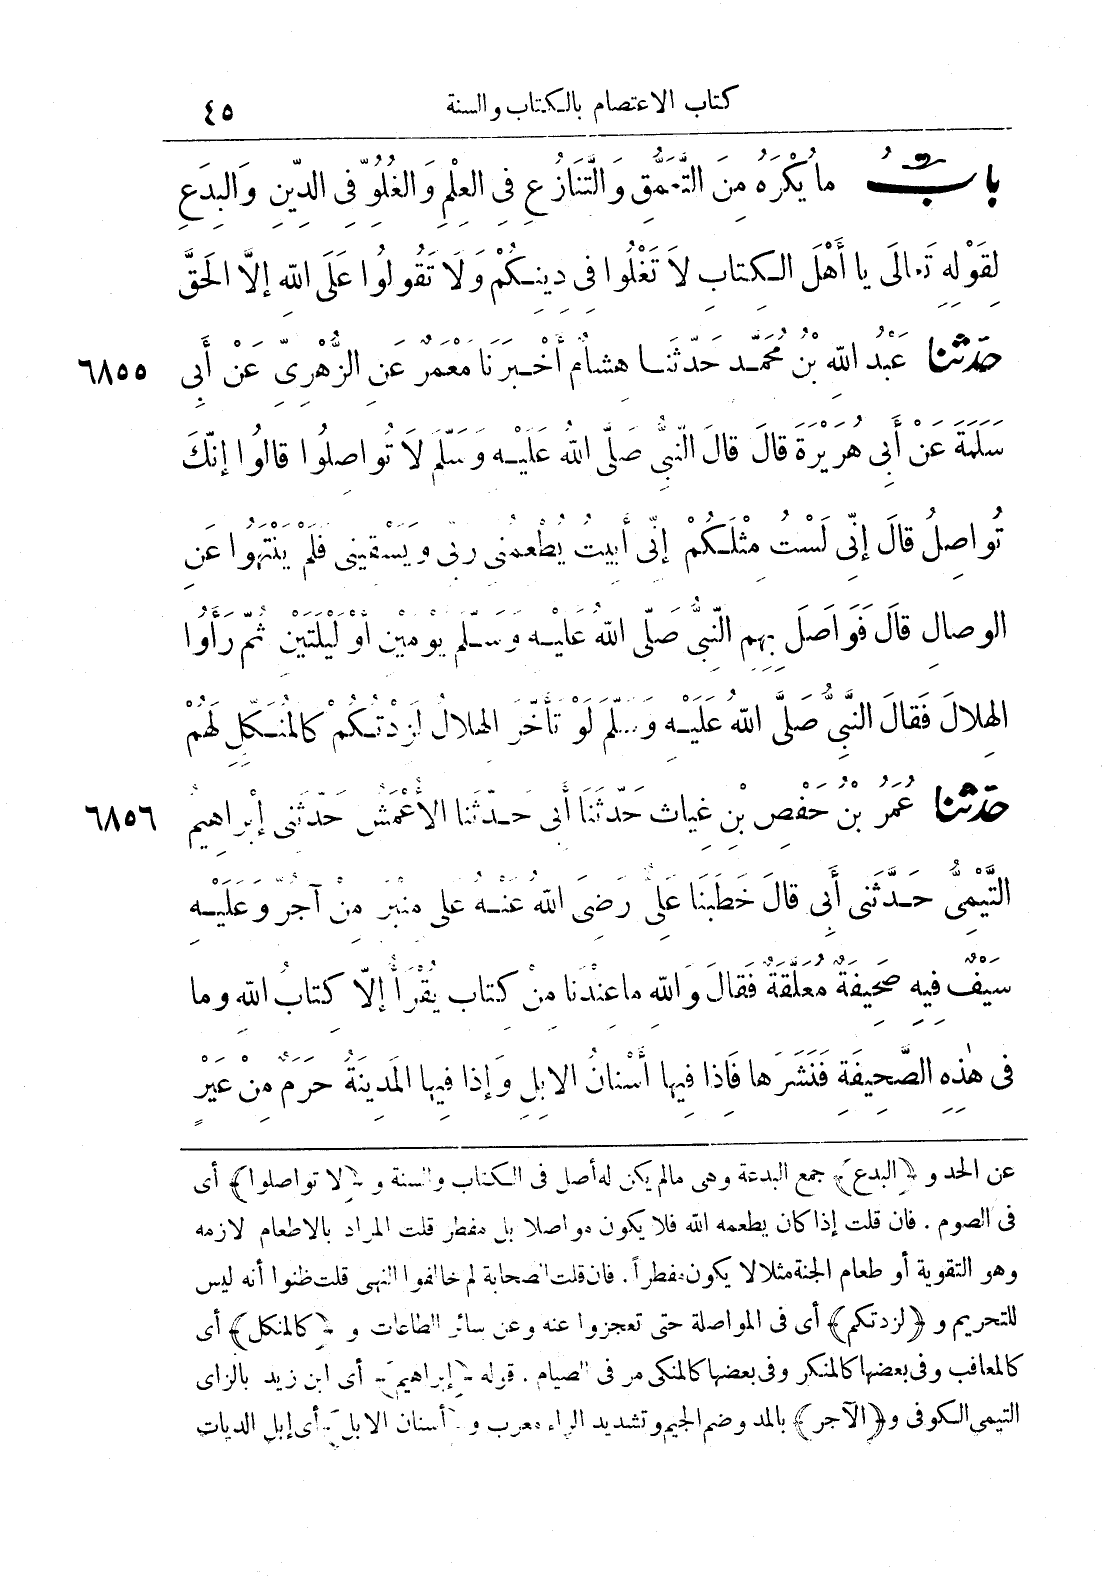 كتاب الاعتصام بالكتاب والسنة ٤٥
بابُ مايُكْرَهُ مِنَ التَّعَمُّقِ وَالتَّنَازُعِ فِي العِلْمِ وَالغُلُوِّ فِي الدِّينِ وَالبِدَعِ
لِقَوْلِهِ تَعالَى يا أَهْلَ الكِتابِ لاَ تَغْلُوا فِي دِينِكُمْ وَلَا تَقُولُوا عَلَى اللهِ إلَّا الحَقَّ
٦٨٥٥ حَدّثنا عَبْدُ اللهِ بْنُ مُحَمَّد حَدّثَنا هِشامٌ أَخْبَرَنَا مَعْمَرٌ عَنِ الزُّهْرِيِّ عَنْ أَبِي
سَلَمَةَ عَنْ أَبِي هُرَيْرَةَ قالَ قالَ النَّبِيُّ صَلَّى اللهُ عَلَيْهِ وَسَلَّمَ لَا تُواصِلُوا قالُوا إنَّكَ
تُواصِلُ قالَ إنِّي لَسْتُ مِثْلَكُمْ إنِّي أَبِيتُ يُطْعِمُنِي رَبِّي وَيَسْقِينِي فَلَمْ يَنْتَهُوا عَنِ
الوِصالِ قالَ فَوَاصَلَ بِهِمِ النَّبِيُّ صَلَّى اللهُ عَلَيْهِ وَسَلَّمَ يَوْمَيْنِ أَوْ لَيْلَتَيْنِ ثُمَّ رَأَوُا
الهِلالَ فَقالَ النَّبِيُّ صَلَّى اللهُ عَلَيْهِ وَسَلَّمَ لَوْ تَأَخَّرَ الهِلالُ لَزِدْتُكُمْ كالمُنَكِّلِ لَهُمْ
٦٨٥٦ حَدّثنا عُمَرُ بْنُ حَفْصِ بْنِ غِياث حَدَّثَنَا أَبِي حَدّثَنا الأَعْمَشُ حَدّثَنِي إبْراهِيمُ
التَّيْمِيُّ حَدَّثَنِي أَبِي قالَ خَطَبَنَا عَلِيٌّ رَضِيَ اللهُ عَنْهُ عَلَى مِنْبَر مِنْ آجُرّ وَعَلَيْهِ
سَيْفٌ فِيهِ صَحِيفَةٌ مُعَلَّقَةٌ فَقالَ وَاللهِ ماعِنْدَنا مِنْ كِتاب يُقْرَأُ إلّا كِتابُ اللهِ وَما
فِي هٰذِهِ الصَّحِيفَةِ فَنَشَرَها فَإذا فِيها أَسْنانُ الإبِلِ وَإذا فِيها المَدِينَةُ حَرَمٌ مِنْ عَيْرٍ
عن الحد و ﴿البدع﴾ جمع البدعة وهى مالم يكن له أصل فى الكتاب والسنة و ﴿لا تواصلوا﴾ أى
فى الصوم . فان قلت إذا كان يطعمه الله فلا يكون مواصلا بل مفطر قلت المراد بالاطعام لازمه
وهو التقوية أو طعام الجنة مثلا لا يكون مفطراً . فان قلت الصحابة لم خالفوا النهى قلت ظنوا أنه ليس
للتحريم و ﴿لزدتكم﴾ أى فى المواصلة حتى تعجزوا عنه وعن سائر الطاعات و ﴿كالمنكل﴾ أى
كالمعاقب وفى بعضها كالمنكر وفى بعضها كالمنكى مر فى الصيام . قوله ﴿إبراهيم﴾ أى ابن زيد بالزاى
التيمى الكوفى و ﴿الآجر﴾ بالمد وضم الجيم وتشديد الراء معرب و ﴿أسنان الابل﴾ أى إبل الديات